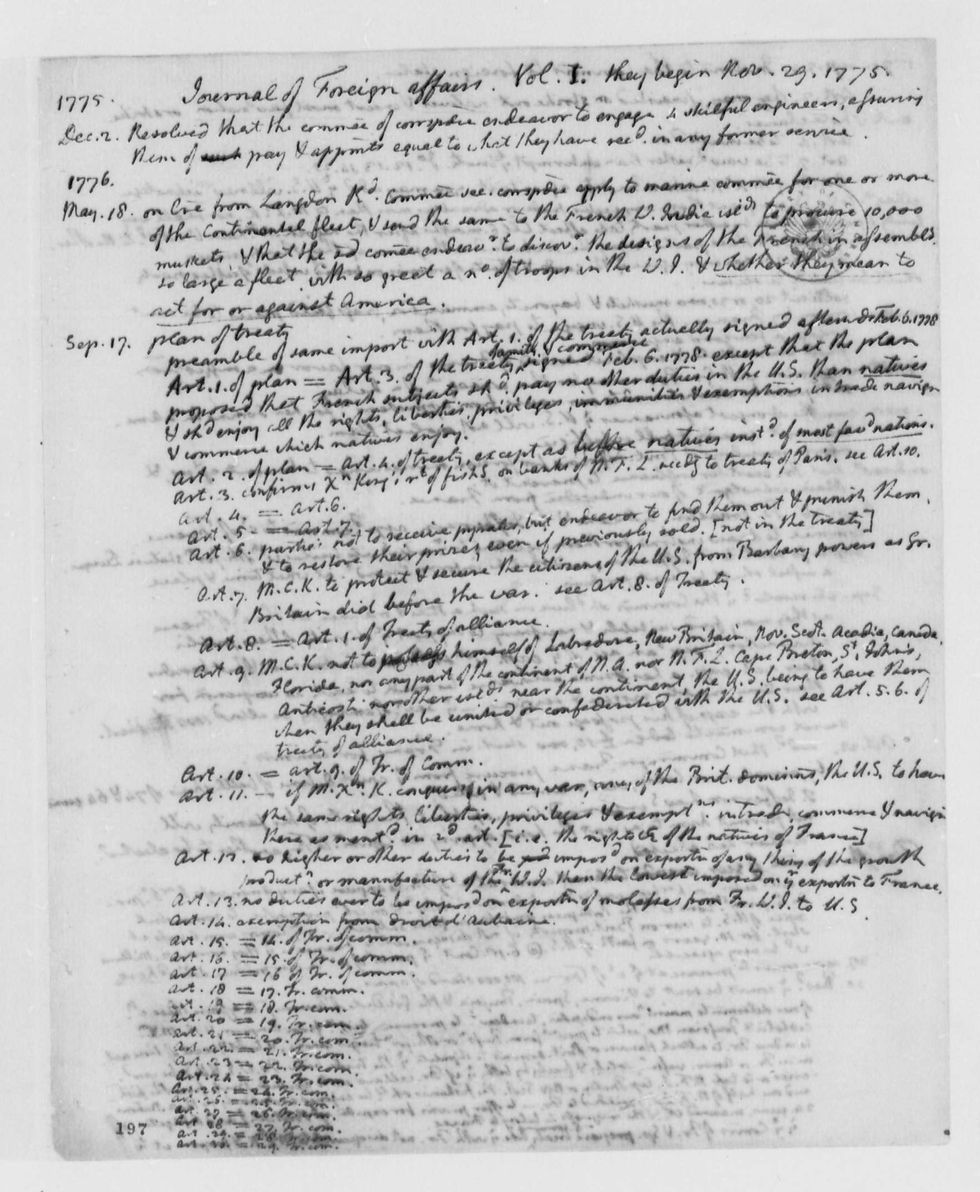 1775. Journal of Foreign affairs. Vol. I. they begin Nov. 29. 1775.
Dec. 2. Resolved that the commee of correspdce endeavor to engage 4 skilful engineers, assuring
them of such pay & appmts equal to what they have recd. in any former service.
1776.
May. 18. on lre from Langdon Rd. Commee sec. correspdce apply to marine commee for one or more
of the Continental fleet, & send the same to the French W. India islds to procure 10,000
muskets, & that the sd comee endeavr. to discovr. the designs of the French in assemblg
so large a fleet with so great a no. of troops in the W. I. & whether they mean to
act for or against America.
Sep. 17. plan of treaty
preamble of same import with Art. 1. of the treaty actually signed afterwds Feb. 6. 1778
Art. 1. of plan = Art. 3. of the treaty of amity & commerce signed Feb. 6. 1778. except that the plan
proposed that French subjects shd. pay no other duties in the U.S. than natives
& shd enjoy all the rights, liberties, privileges, immunities & exemptions in trade navign
& commerce which natives enjoy.
Art. 2. of plan = Art. 4. of treaty, except as before natives instd. of most favd nations.
Art. 3. confirms Xn King's rt of fishg on banks of N. F. L. accdg to treaty of Paris. see Art. 10.
Art. 4. = Art. 6.
Art. 5. = Art. 7.
Art. 6. parties not to receive pyrates, but endeavor to find them out & punish them,
& to restore their prizes even if previously sold. [not in the treaty]
Art. 7. M.C.K. to protect & secure the citizens of the U.S. from Barbary powers as Gr.
Britain did before the war. see Art. 8. of Treaty.
Art. 8. = Art. 1. of Treaty of alliance.
Art. 9. M.C.K. not to possess himself of Labradore, New Britain, Nov. Scot. Acadia, Canada,
Florida, nor any part of the continent of N.A. nor N. F. L. Cape Breton, St. John's,
Anticosti nor other islds near the continent, the U.S. being to have them
when they shall be united or confederated with the U.S. see Art. 5. 6. of
treaty of alliance.
Art. 10. = art. 9. of Tr. of Comm.
Art. 11. — if M. Xn. K. conquers, in any war, any of the Brit. dominions, the U.S. to have
the same rights, liberties, privileges & exemptns. in trade, commerce & navign
there as mentd. in 2d. art. [i.e. the rights &c of the natives of France]
Art. 12. no higher or other duties to be imposd on exportn of any thing of the growth
productn. or manufacture of the Fr. W. I. than the lowest imposed on ye exportn to France,
Art. 13. no duties ever to be imposd on exportn of molasses from Fr. W. I. to U S.
Art. 14. exemption from droit d'aubaine.
Art. 15. = 14. of Tr. of comm.
Art. 16. = 15. of Tr. of comm.
Art. 17 = 16 of Tr. of comm.
Art. 18 = 17. Tr. comm.
Art. 19 = 18. Tr. com.
Art. 20 = 19. Tr. com.
Art. 21 = 20. Tr. com.
Art. 22. = 21. Tr. com.
Art. 23 = 22. Tr. com.
Art. 24 = 23. Tr. com.
Art. 25. = 24. Tr. com.
Art. 26 = 25. Tr. com.
Art. 27 = 26. Tr. com.
Art. 28 = 27. Tr. com.
Art. 29. = 28 Tr. com.
Art. 30. = 29. Tr. com.
197